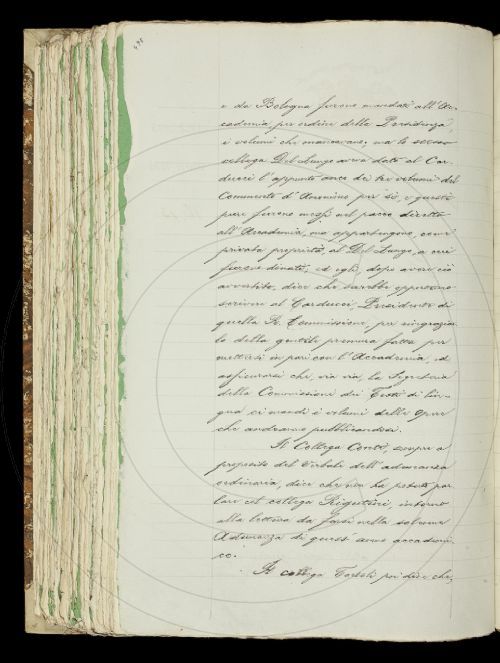 e da Bologna furono mandati all'Ac-
cademia per ordine della Presidenza,
i volumi che mancavano; ma lo stesso
collega Del Lungo aveva dato al Car-
ducci l'appunto anco dei tre volumi del
Commento d'Anonimo per sé, e questi
pure furono messi nel pacco diretto
all'Accademia, ma appartengono, come
privata proprietà, al Del Lungo, a cui
furono donati; ed egli, dopo avere ciò
avvertito, dice che sarebbe opportuno
scrivere al Carducci, Presidente di
quella R. Commissione, per ringraziar
lo della gentile premura fatta per
mettersi in pari con l'Accademia, ed
assicurarsi che, via via, la Segreteria
della Commissione dei Testi di Lin-
gua, ci mandi i volumi delle Opere
che andranno pubblicandosi.
Il Collega Conti, sempre a
proposito del Verbale dell'adunanza
ordinaria, dice che non ha potuto par
lare col collega Rigutini, intorno
alla lettura da farsi nella solenne
Adunanza di quest'anno accademi-
co.
Il collega Tortoli poi dice che,